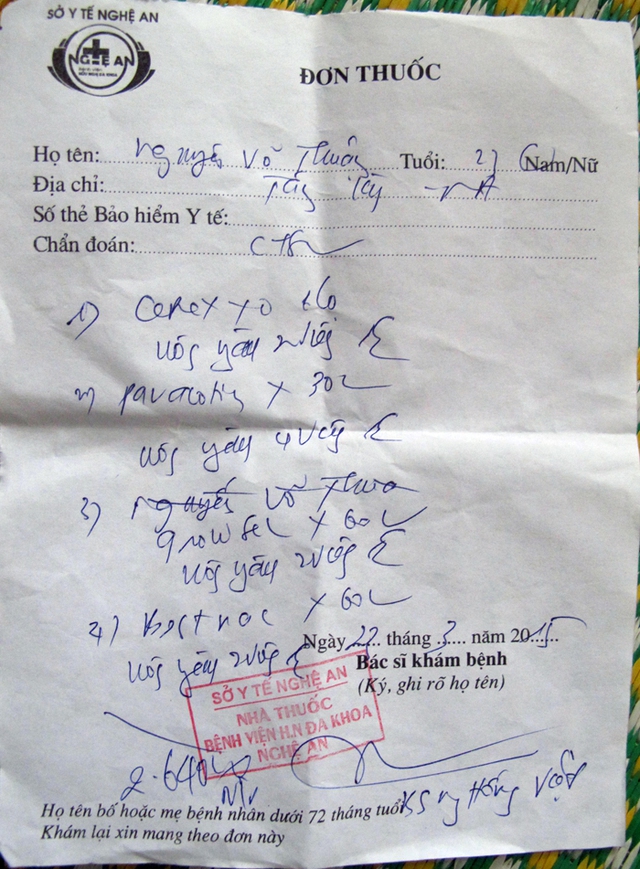 SỞ Y TẾ NGHỆ AN
NGHỆ AN
ĐƠN THUỐC
Họ tên: Nguyễn Võ Tuổi: 27 Nam/Nữ
Địa chỉ: Tân Kỳ - NA
Số thẻ Bảo hiểm Y tế:
Chẩn đoán:
1) Cerex
uống ngày 2 viên
2) x 30
uống ngày 4 viên
3) Nguyễn Võ
Growsel x 60
uống ngày 2 viên
4) x 60
uống ngày 2 viên
Ngày 22 tháng 3 năm 2015
Bác sĩ khám bệnh
(Ký, ghi rõ họ tên)
SỞ Y TẾ NGHỆ AN
NHÀ THUỐC
BỆNH VIỆN H.N ĐA KHOA
NGHỆ AN
2.640
Họ tên bố hoặc mẹ bệnh nhân dưới 72 tháng tuổi
Khám lại xin mang theo đơn này